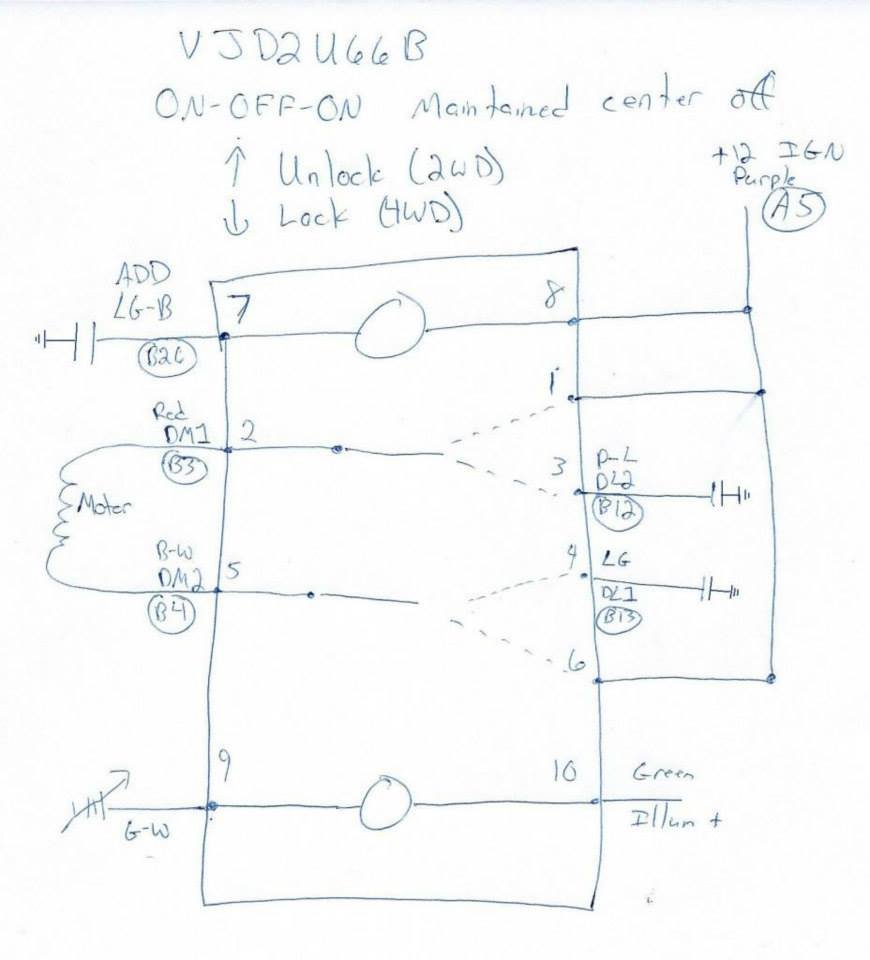 VJD2U66B
ON-OFF-ON Maintained center off
↑ Unlock (2WD)
↓ Lock (4WD)
+12 IGN
Purple
A5
ADD
LG-B
7
8
B26
1
Red
DM1
2
B3
3
P-L
DL2
B12
Motor
B-W
DM2
5
B4
4
LG
DL1
B13
6
9
10
Green
G-W
Illum +